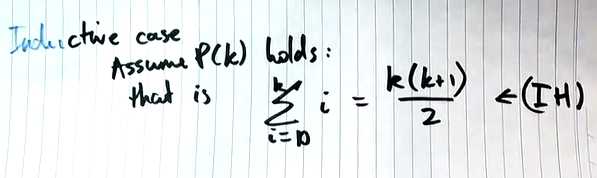 Inductive case
Assume P(k) holds:
that is ∑_{i=0}^{k} i = k(k+1)/2 ← (IH)